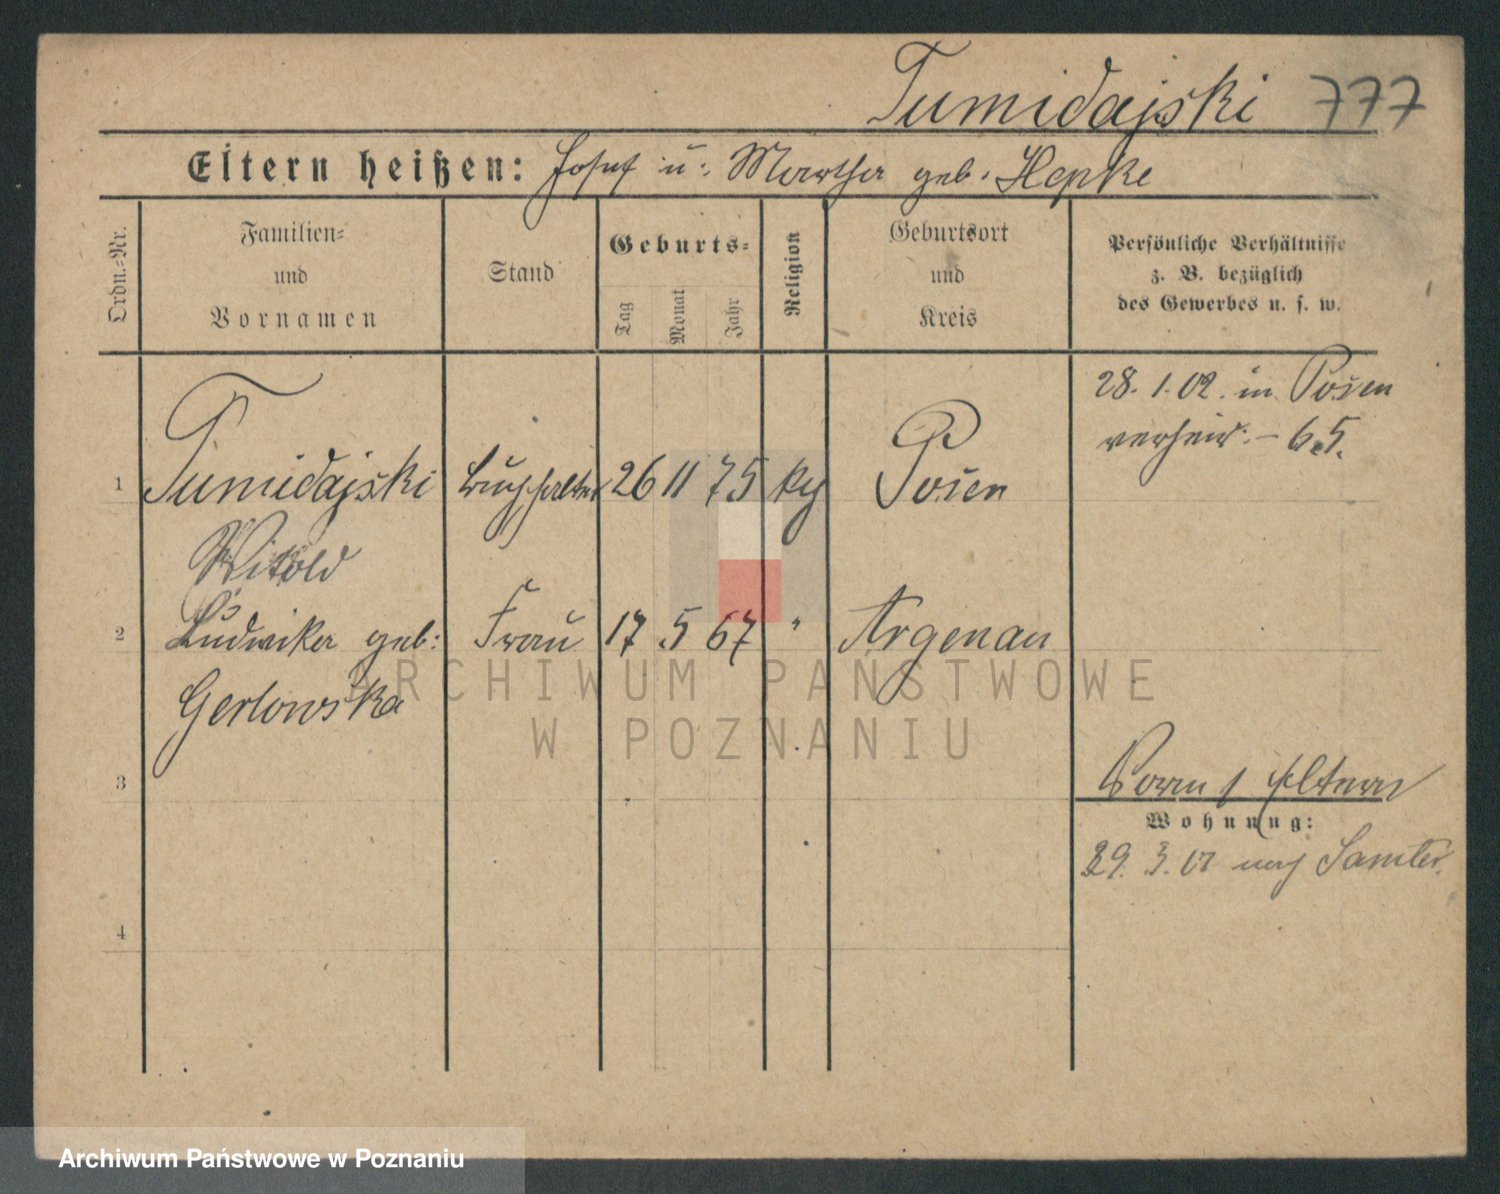 Tumidajski 777
Eltern heißen: Josef u. Martha geb. Hepke
Ordn.=Nr.
Familien=
und
Vornamen
Stand
Geburts=
Tag
Monat
Jahr
Religion
Geburtsort
und
Kreis
Persönliche Verhältnisse
z. B. bezüglich
des Gewerbes u. s. w.
28. 1. 02. in Posen
verheir. – 6.5.
1 Tumidajski Buchhalter 26 11 75 kg Posen
Witold
2 Ludwika geb: Frau 17 5 67 " Argenau
Gerlowska
ARCHIWUM PAŃSTWOWE
W POZNANIU
3
Eltern
Wohnung:
29. 3. 02 nach Samter.
4
Archiwum Państwowe w Poznaniu